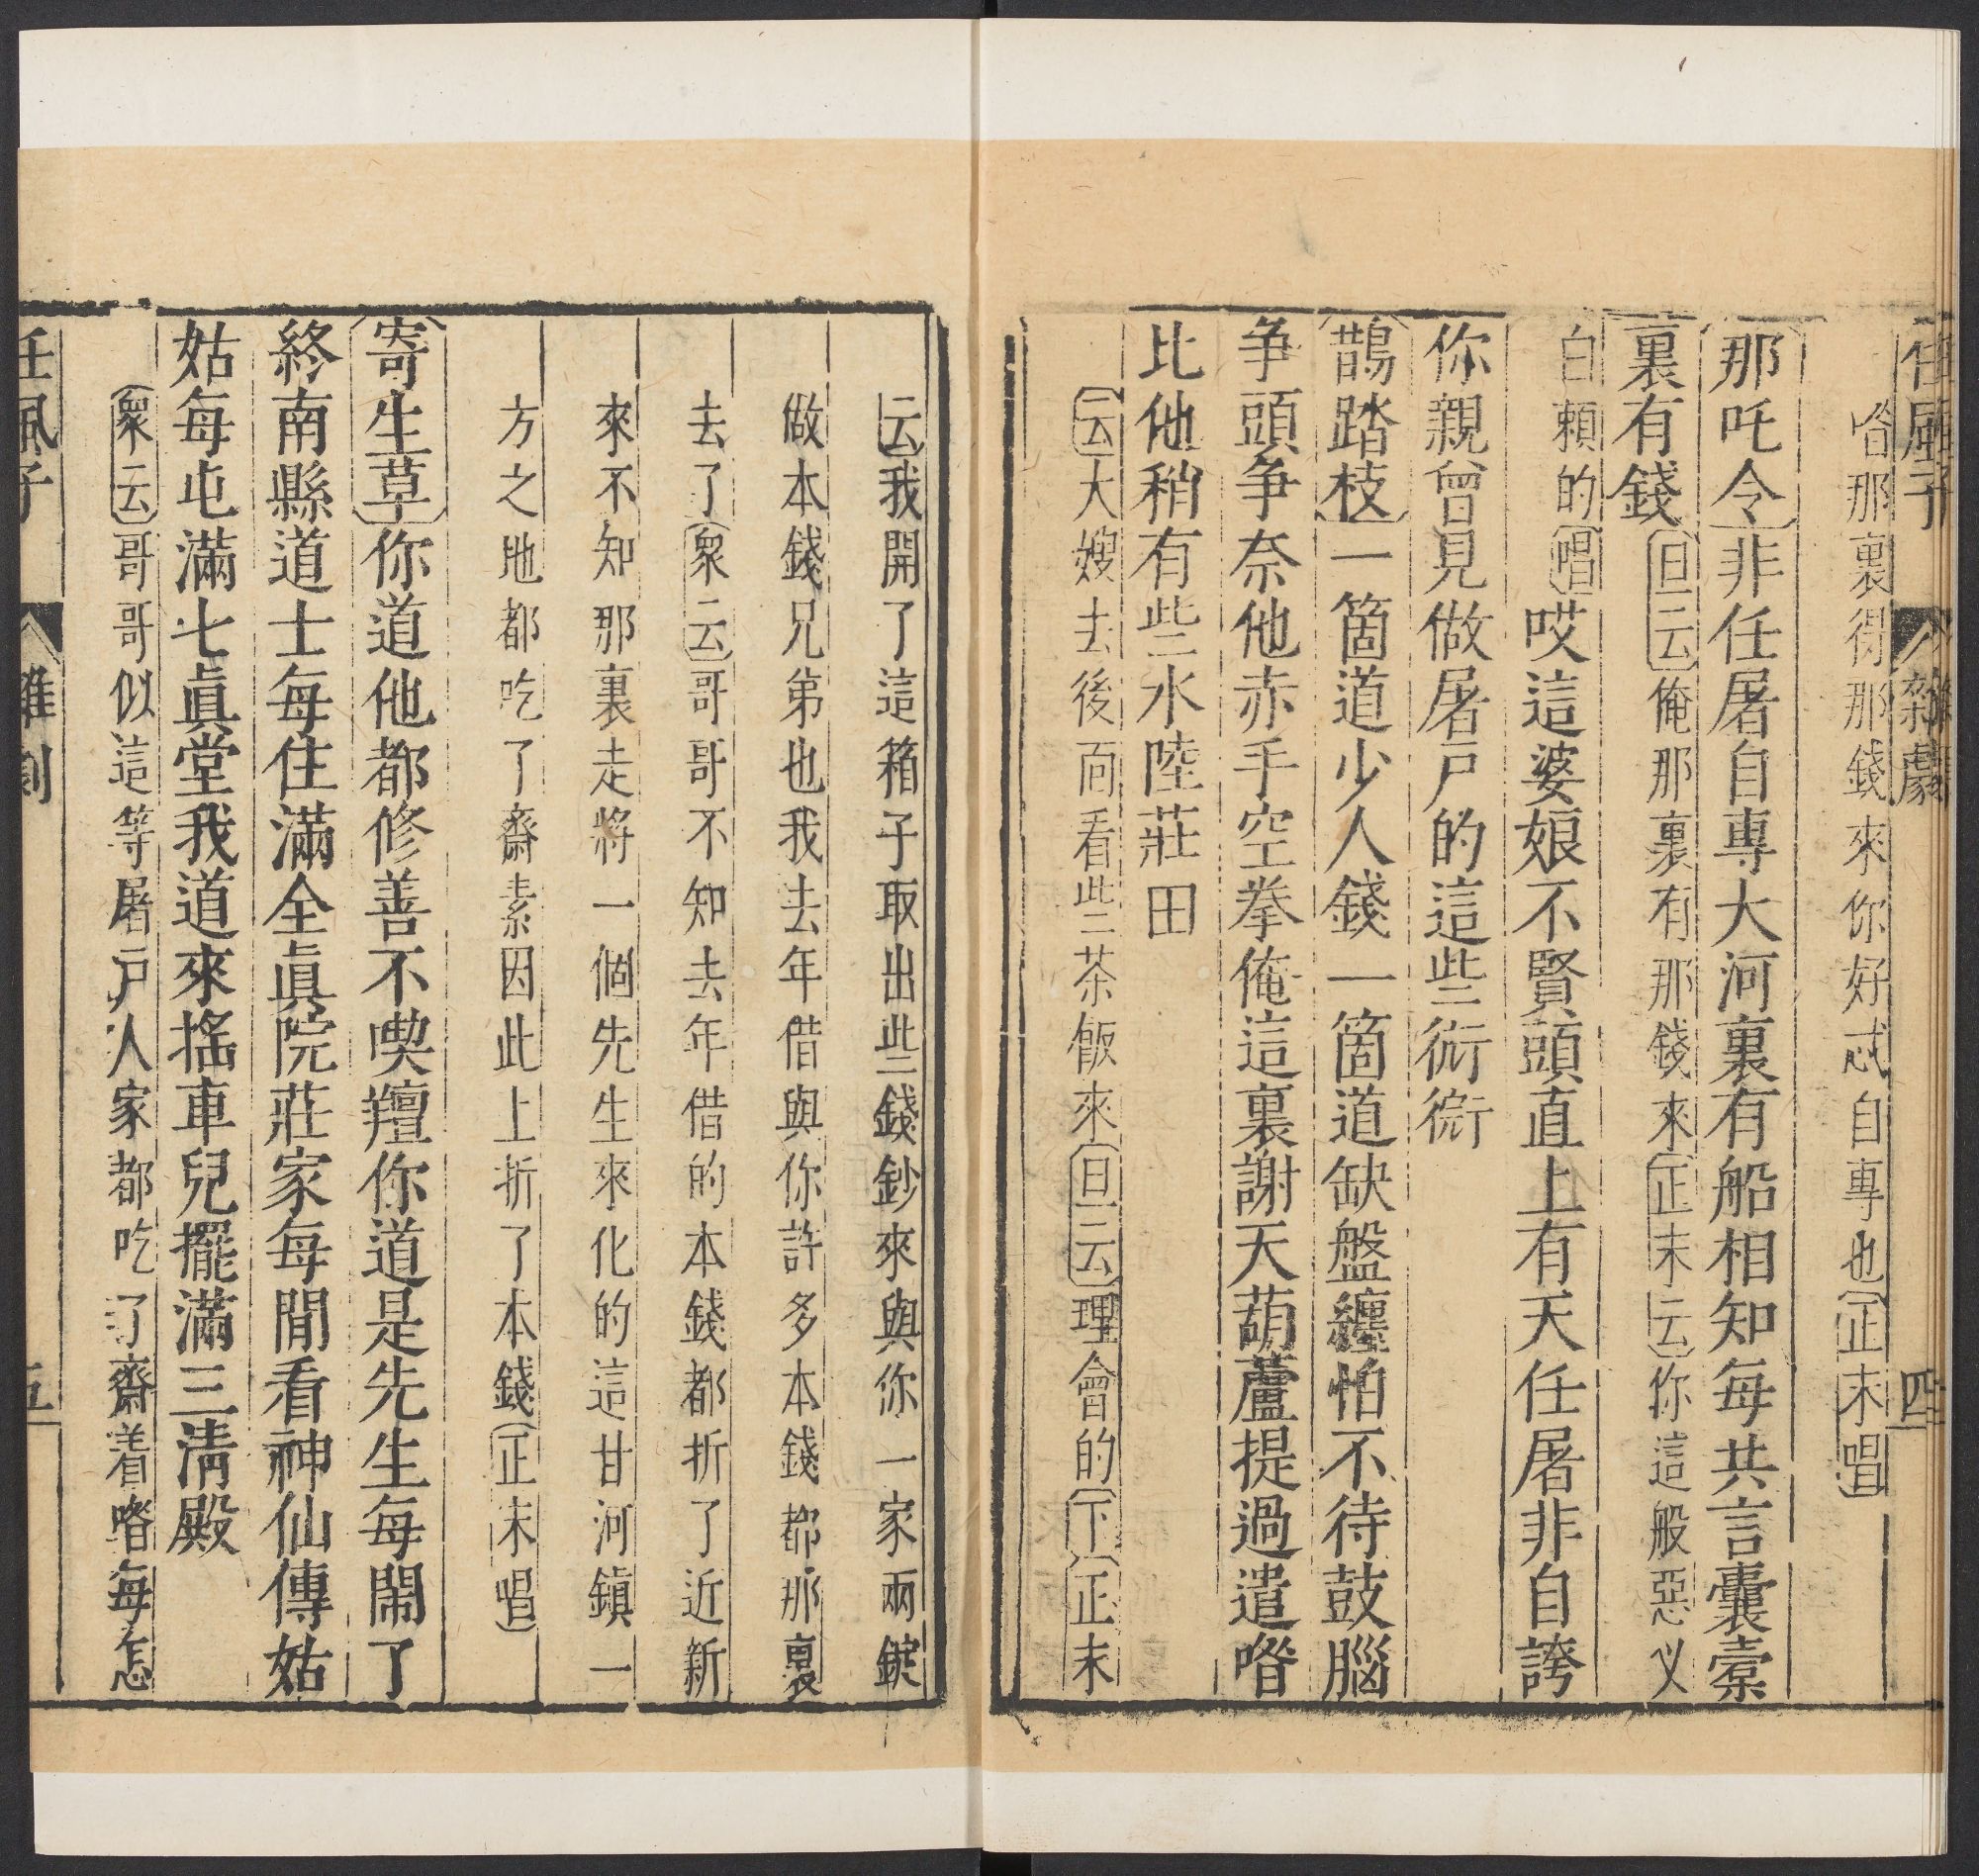 任風子 雜劇 四
喒那裏得那錢來你好忒自專也(正末唱)
〔那吒令〕非任屠自專大河裏有船相知每共言囊橐
裏有錢(旦云)俺那裏有那錢來(正末云)你這般惡乂
白賴的(唱)哎這婆娘不賢頭直上有天任屠非自誇
你親曾見做屠戶的這些衠衠
〔鵲踏枝〕一箇道少人錢一箇道缺盤纏怕不待鼓腦
爭頭爭奈他赤手空拳俺這裏謝天葫蘆提過遣喒
比他稍有些水陸莊田
(云)大嫂去後面看些茶飯來(旦云)理會的(下)(正末
云)我開了這箱子取出些錢鈔來與你一家兩錠
做本錢兄弟也我去年借與你許多本錢都那裏
去了(衆云)哥哥不知去年借的本錢都折了近新
來不知那裏走將一個先生來化的這甘河鎮一
方之地都吃了齋素因此上折了本錢(正末唱)
〔寄生草〕你道他都修善不喫羶你道是先生每鬧了
終南縣道士每住滿全眞院莊家每閒看神仙傳姑
姑每屯滿七眞堂我道來搖車兒擺滿三淸殿
(衆云)哥哥似這等屠戶人家都吃了齋着喒每怎
任風子 雜劇 五